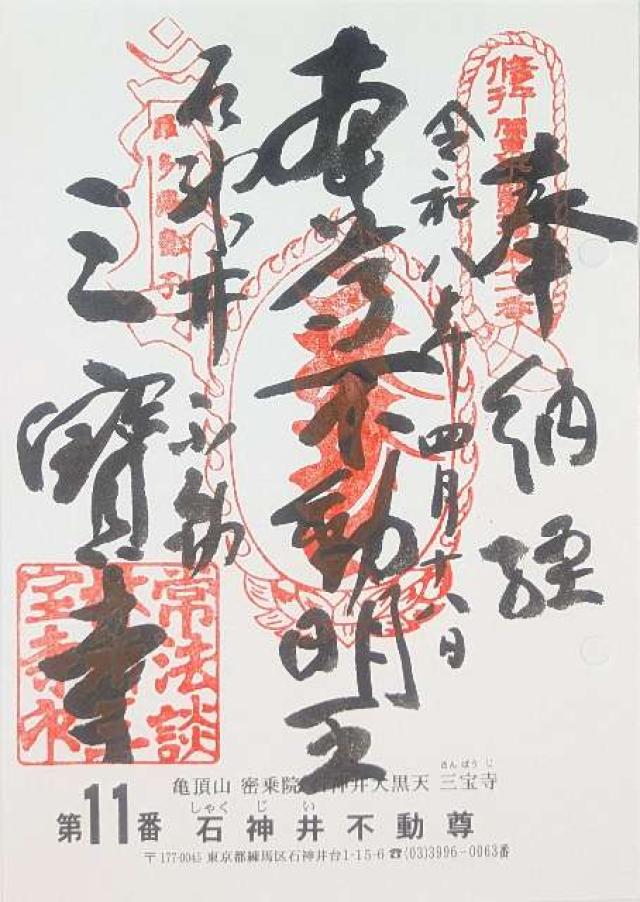 奉納経
令和八年四月十八日
本尊不動明王
石神井 不動
三寶寺
修行
十一番
常法談
さんぽうじ
亀頂山 密乗院 石神井大黒天 三宝寺
しゃくじい
第11番 石神井不動尊
〒177-0045 東京都練馬区石神井台1-15-6 ☎(03)3996-0063番